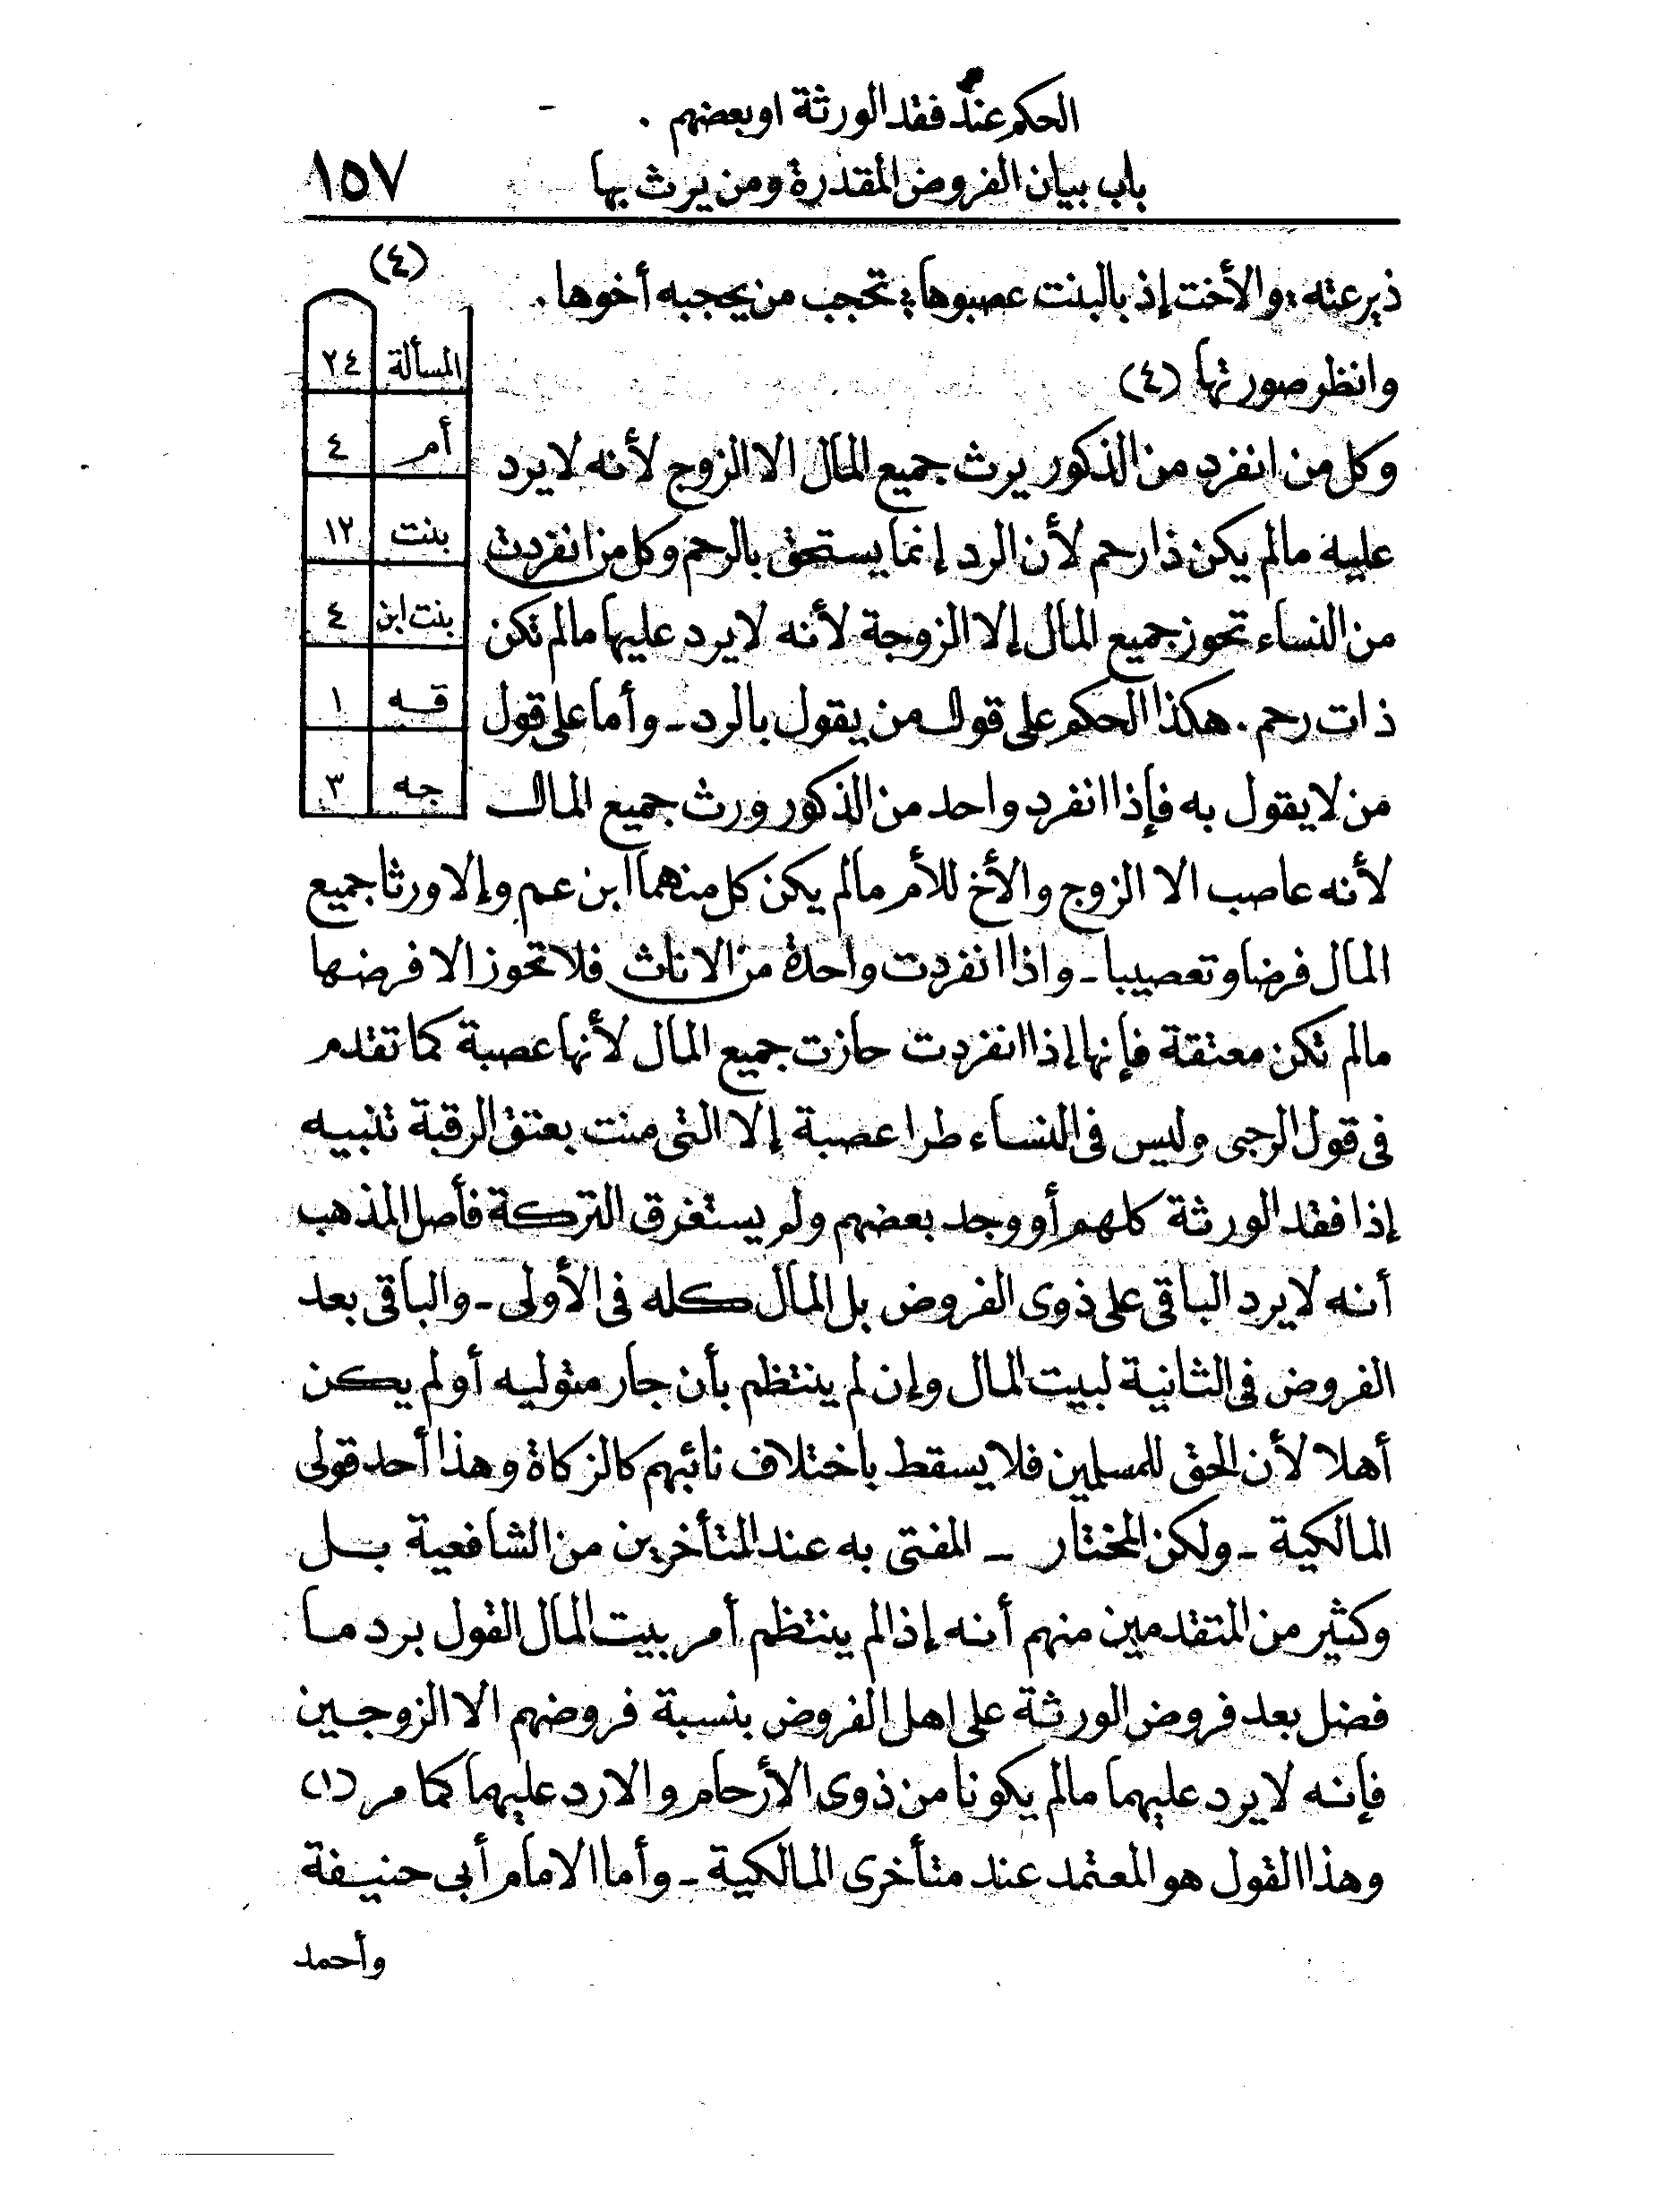 الحكم عند فقد الورثة اوبعضهم .
باب بيان الفروض المقدرة ومن يرث بها ١٥٧
والأخت إذ بالبنت عصبوها ؛ تحجب من يحجبه أخوها .
وانظر صورتها (٤)
وكل من انفرد من الذكور يرث جميع المال الا الزوج لأنه لا يرد
عليه مالم يكن ذا رحم لأن الرد إنما يستحق بالرحم وكل من انفردت
من النساء تحوز جميع المال إلا الزوجة لأنه لا يرد عليها مالم تكن
ذات رحم . هكذا الحكم على قول من يقول بالرد ـ وأما على قول
من لا يقول به فإذا انفرد واحد من الذكور ورث جميع المال
لأنه عاصب الا الزوج والأخ للأم مالم يكن كل منهما ابن عم وإلا ورثا جميع
المال فرضا وتعصيبا ـ واذا انفردت واحدة من الاناث فلا تحوز الا فرضها
مالم تكن معتقة فإنها إذا انفردت حازت جميع المال لأنها عصبة كما تقدم
فى قول الرحبى وليس فى النساء طرا عصبة إلا التى منت بعتق الرقبة تنبيه
إذا فقد الورثة كلهم أو وجد بعضهم ولم يستغرق التركة فأصل المذهب
أنه لا يرد الباقى على ذوى الفروض بل المال كله فى الأولى ـ والباقى بعد
الفروض فى الثانية لبيت المال وإن لم ينتظم بأن جار متوليه أو لم يكن
أهلا لأن الحق للمسلمين فلا يسقط باختلاف نائبهم كالزكاة وهذا أحد قولى
المالكية ـ ولكن المختار ـ المفتى به عند المتأخرين من الشافعية بل
وكثير من المتقدمين منهم أنه إذا لم ينتظم أمر بيت المال القول برد ما
فضل بعد فروض الورثة على اهل الفروض بنسبة فروضهم الا الزوجين
فإنه لا يرد عليهما مالم يكونا من ذوى الأرحام والا رد عليهما كما مر (١)
وهذا القول هو المعتمد عند متأخرى المالكية ـ وأما الامام أبى حنيفة
وأحمد
(٤)
المسألة ٢٤
أم ٤
بنت ١٢
بنت ابن ٤
قه ١
جه ٣